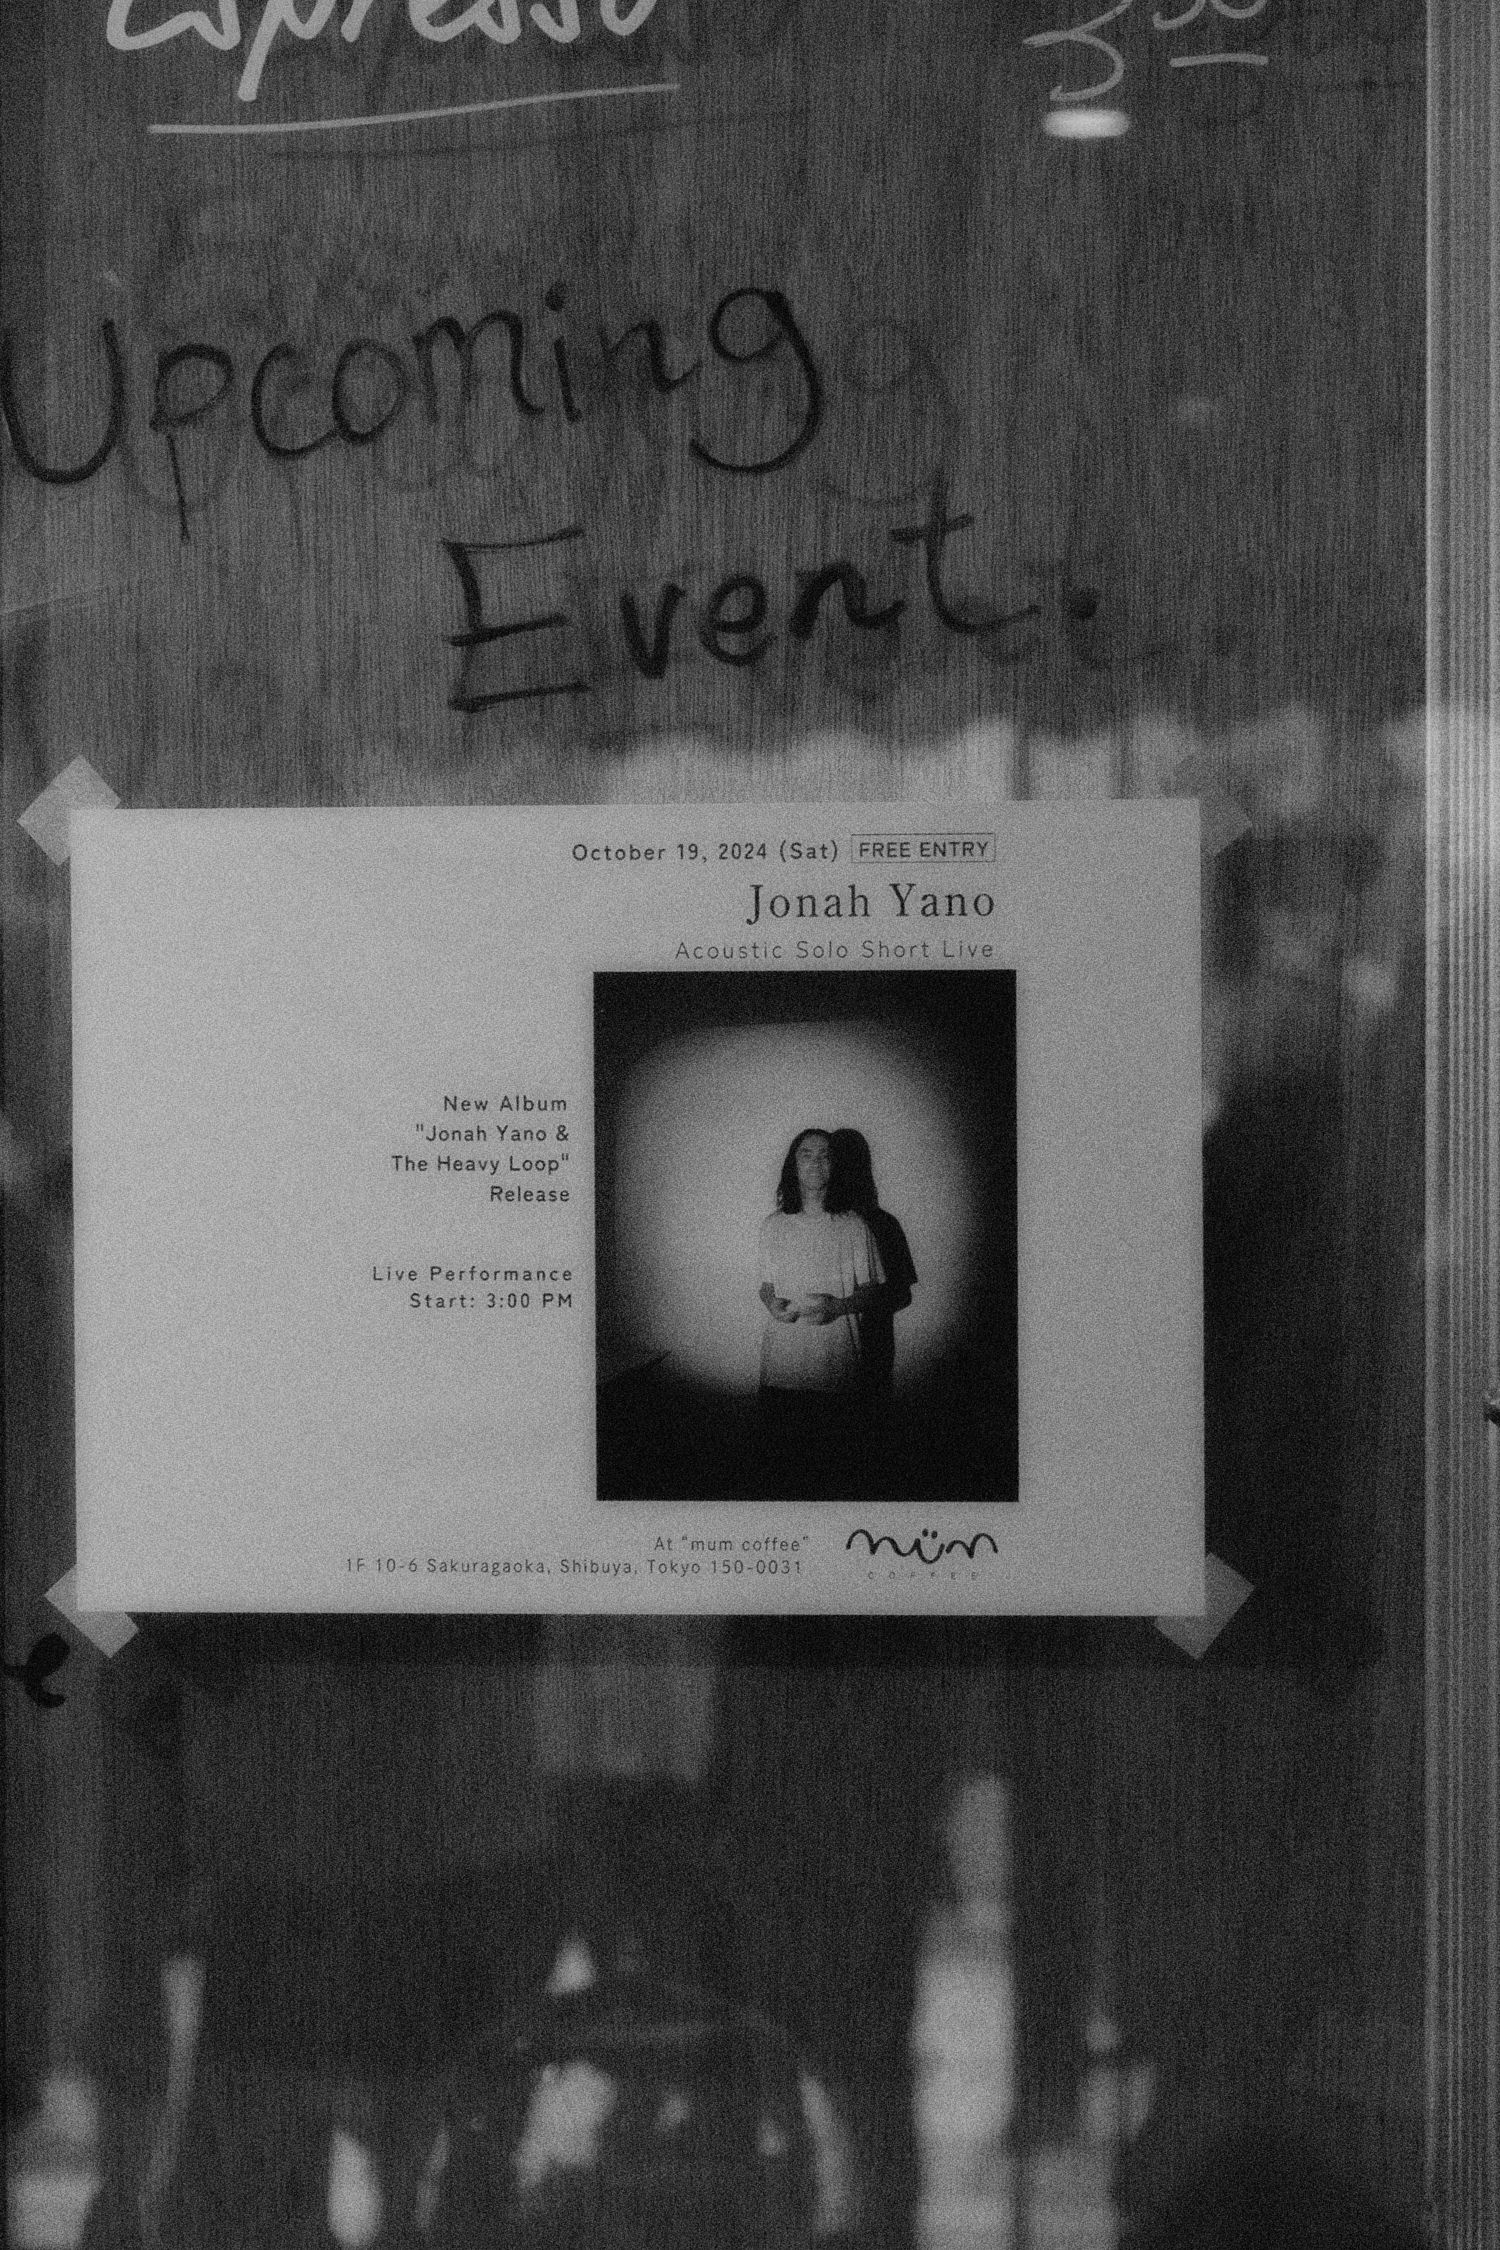 Espresso
Upcoming
Event.
October 19, 2024 (Sat) FREE ENTRY
Jonah Yano
Acoustic Solo Short Live
New Album
"Jonah Yano &
The Heavy Loop"
Release
Live Performance
Start: 3:00 PM
At "mum coffee"
1F 10-6 Sakuragaoka, Shibuya, Tokyo 150-0031
müm
COFFEE
e